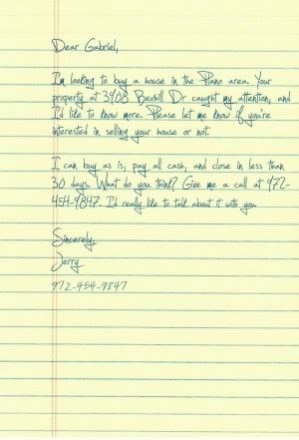 Dear Gabriel,
I'm looking to buy a house in the Plano area. Your
property at 3908 Bexhill Dr caught my attention, and
I'd like to know more. Please let me know if you're
interested in selling your house or not.
I can buy as is, pay all cash, and close in less than
30 days. What do you think? Give me a call at 972-
454-9847. I'd really like to talk about it with you
Sincerely,
Jerry
972-454-9847